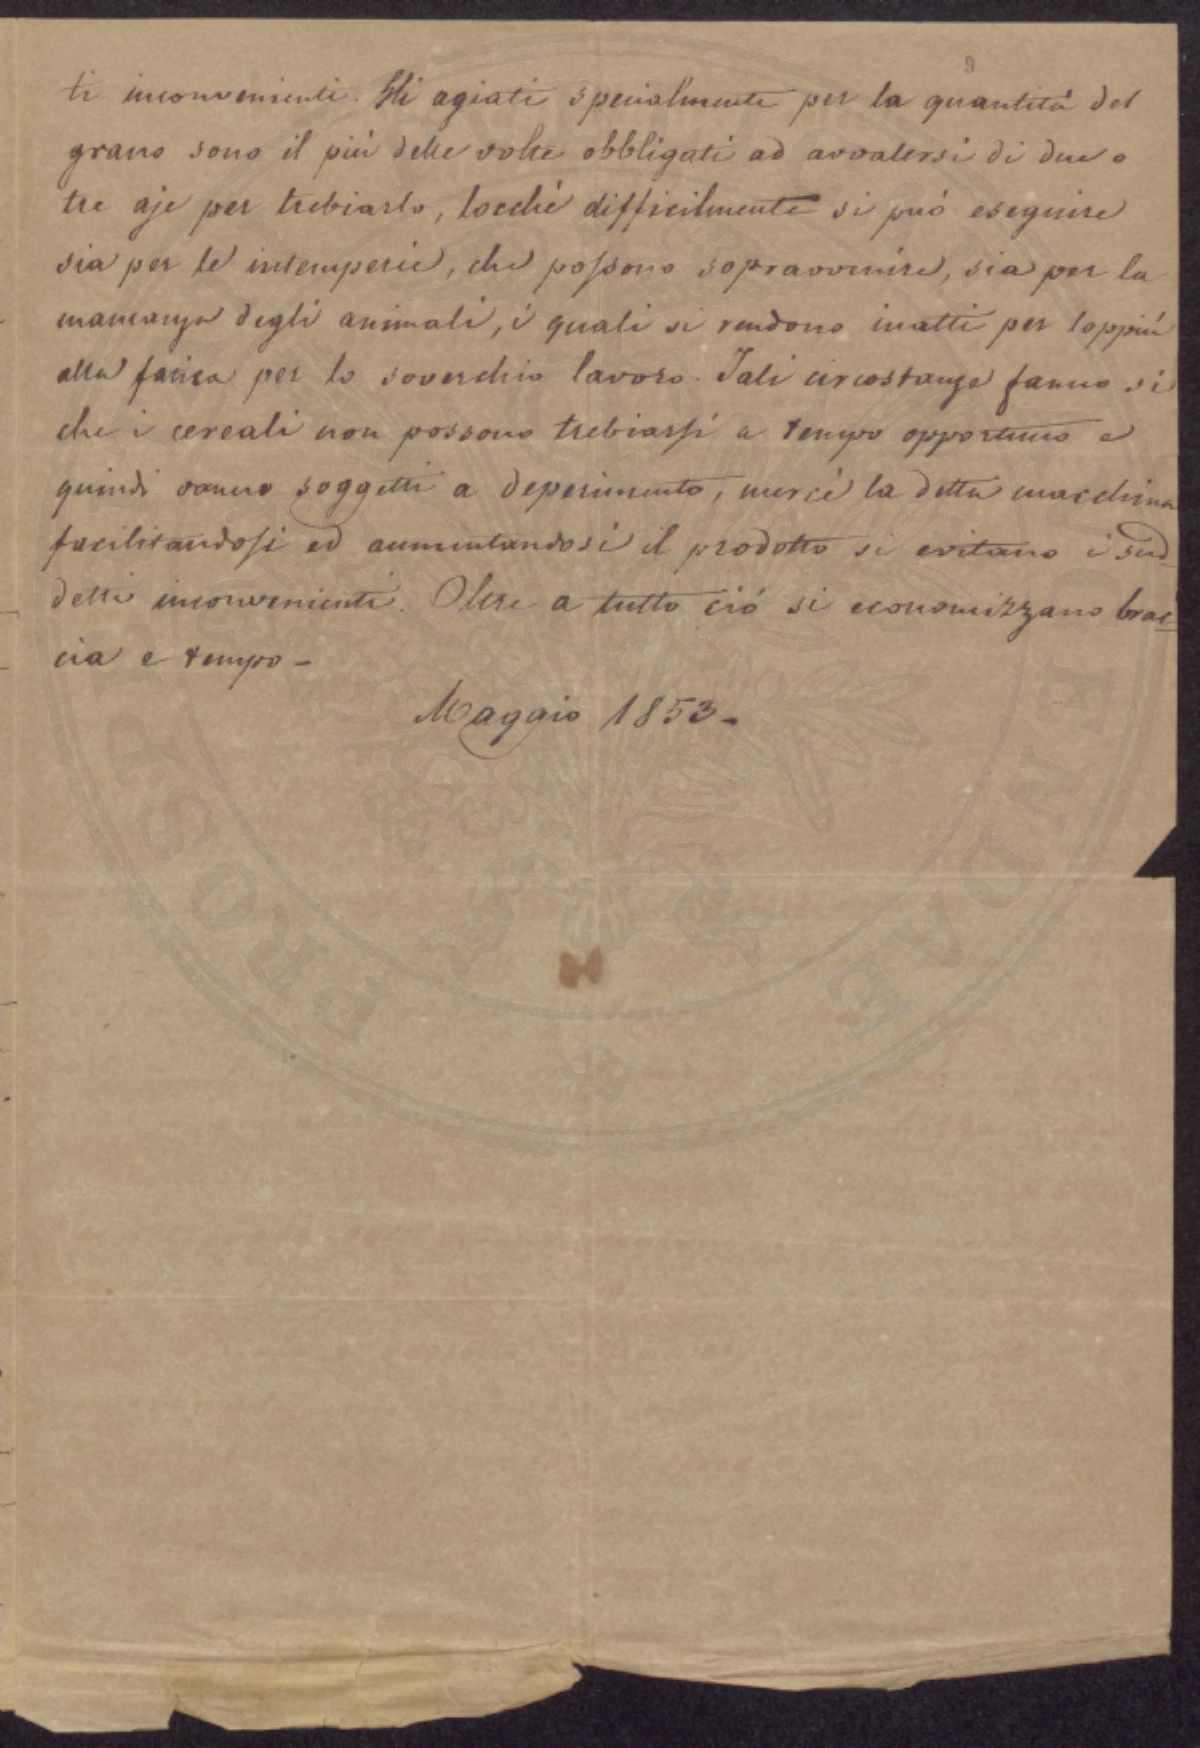 9
ti inconvenienti. Gli agiati specialmente per la quantità del
grano sono il più delle volte obbligati ad avvalersi di due o
tre aje per trebiarlo, locchè difficilmente si può eseguire
sia per le intemperie, che possono sopravvenire, sia per la
mancanza degli animali, i quali si rendono inatti per loppiù
alla fatica per lo soverchio lavoro. Tali circostanze fanno sì
che i cereali non possono trebiarsi a tempo opportuno e
quindi vanno soggetti a deperimento, mercè la detta macchina
facilitandosi ed aumentandosi il prodotto si evitano i sud=
detti inconvenienti. Oltre a tutto ciò si economizzano brac=
cia e tempo -
Maggio 1853 -
PROSPI
UNDAE